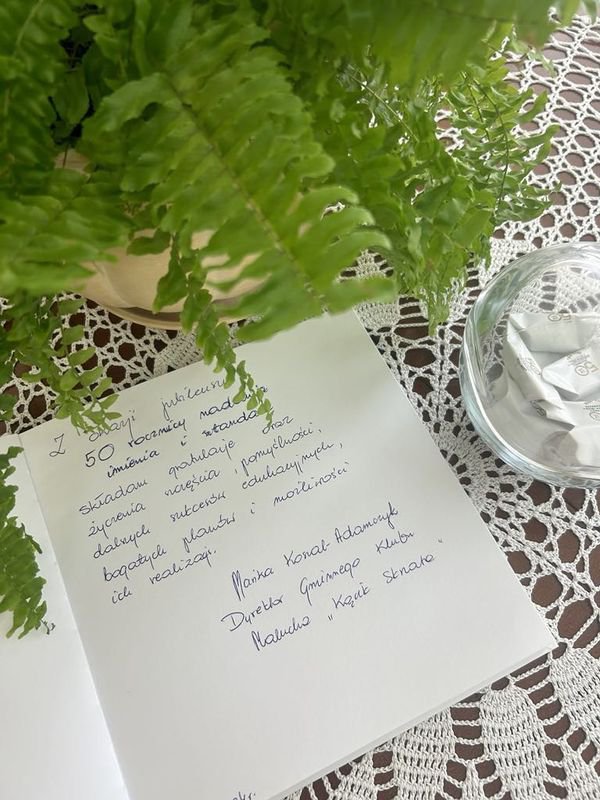 Z okazji jubileuszu
50 rocznicy nadania
imienia i sztandaru
składam gratulacje oraz
życzenia szczęścia, pomyślności,
dalnych sukcesów edukacyjnych,
bogatych planów i możliwości
ich realizacji.
Dyrektor Gminnego Klubu
Malucha „Kącik